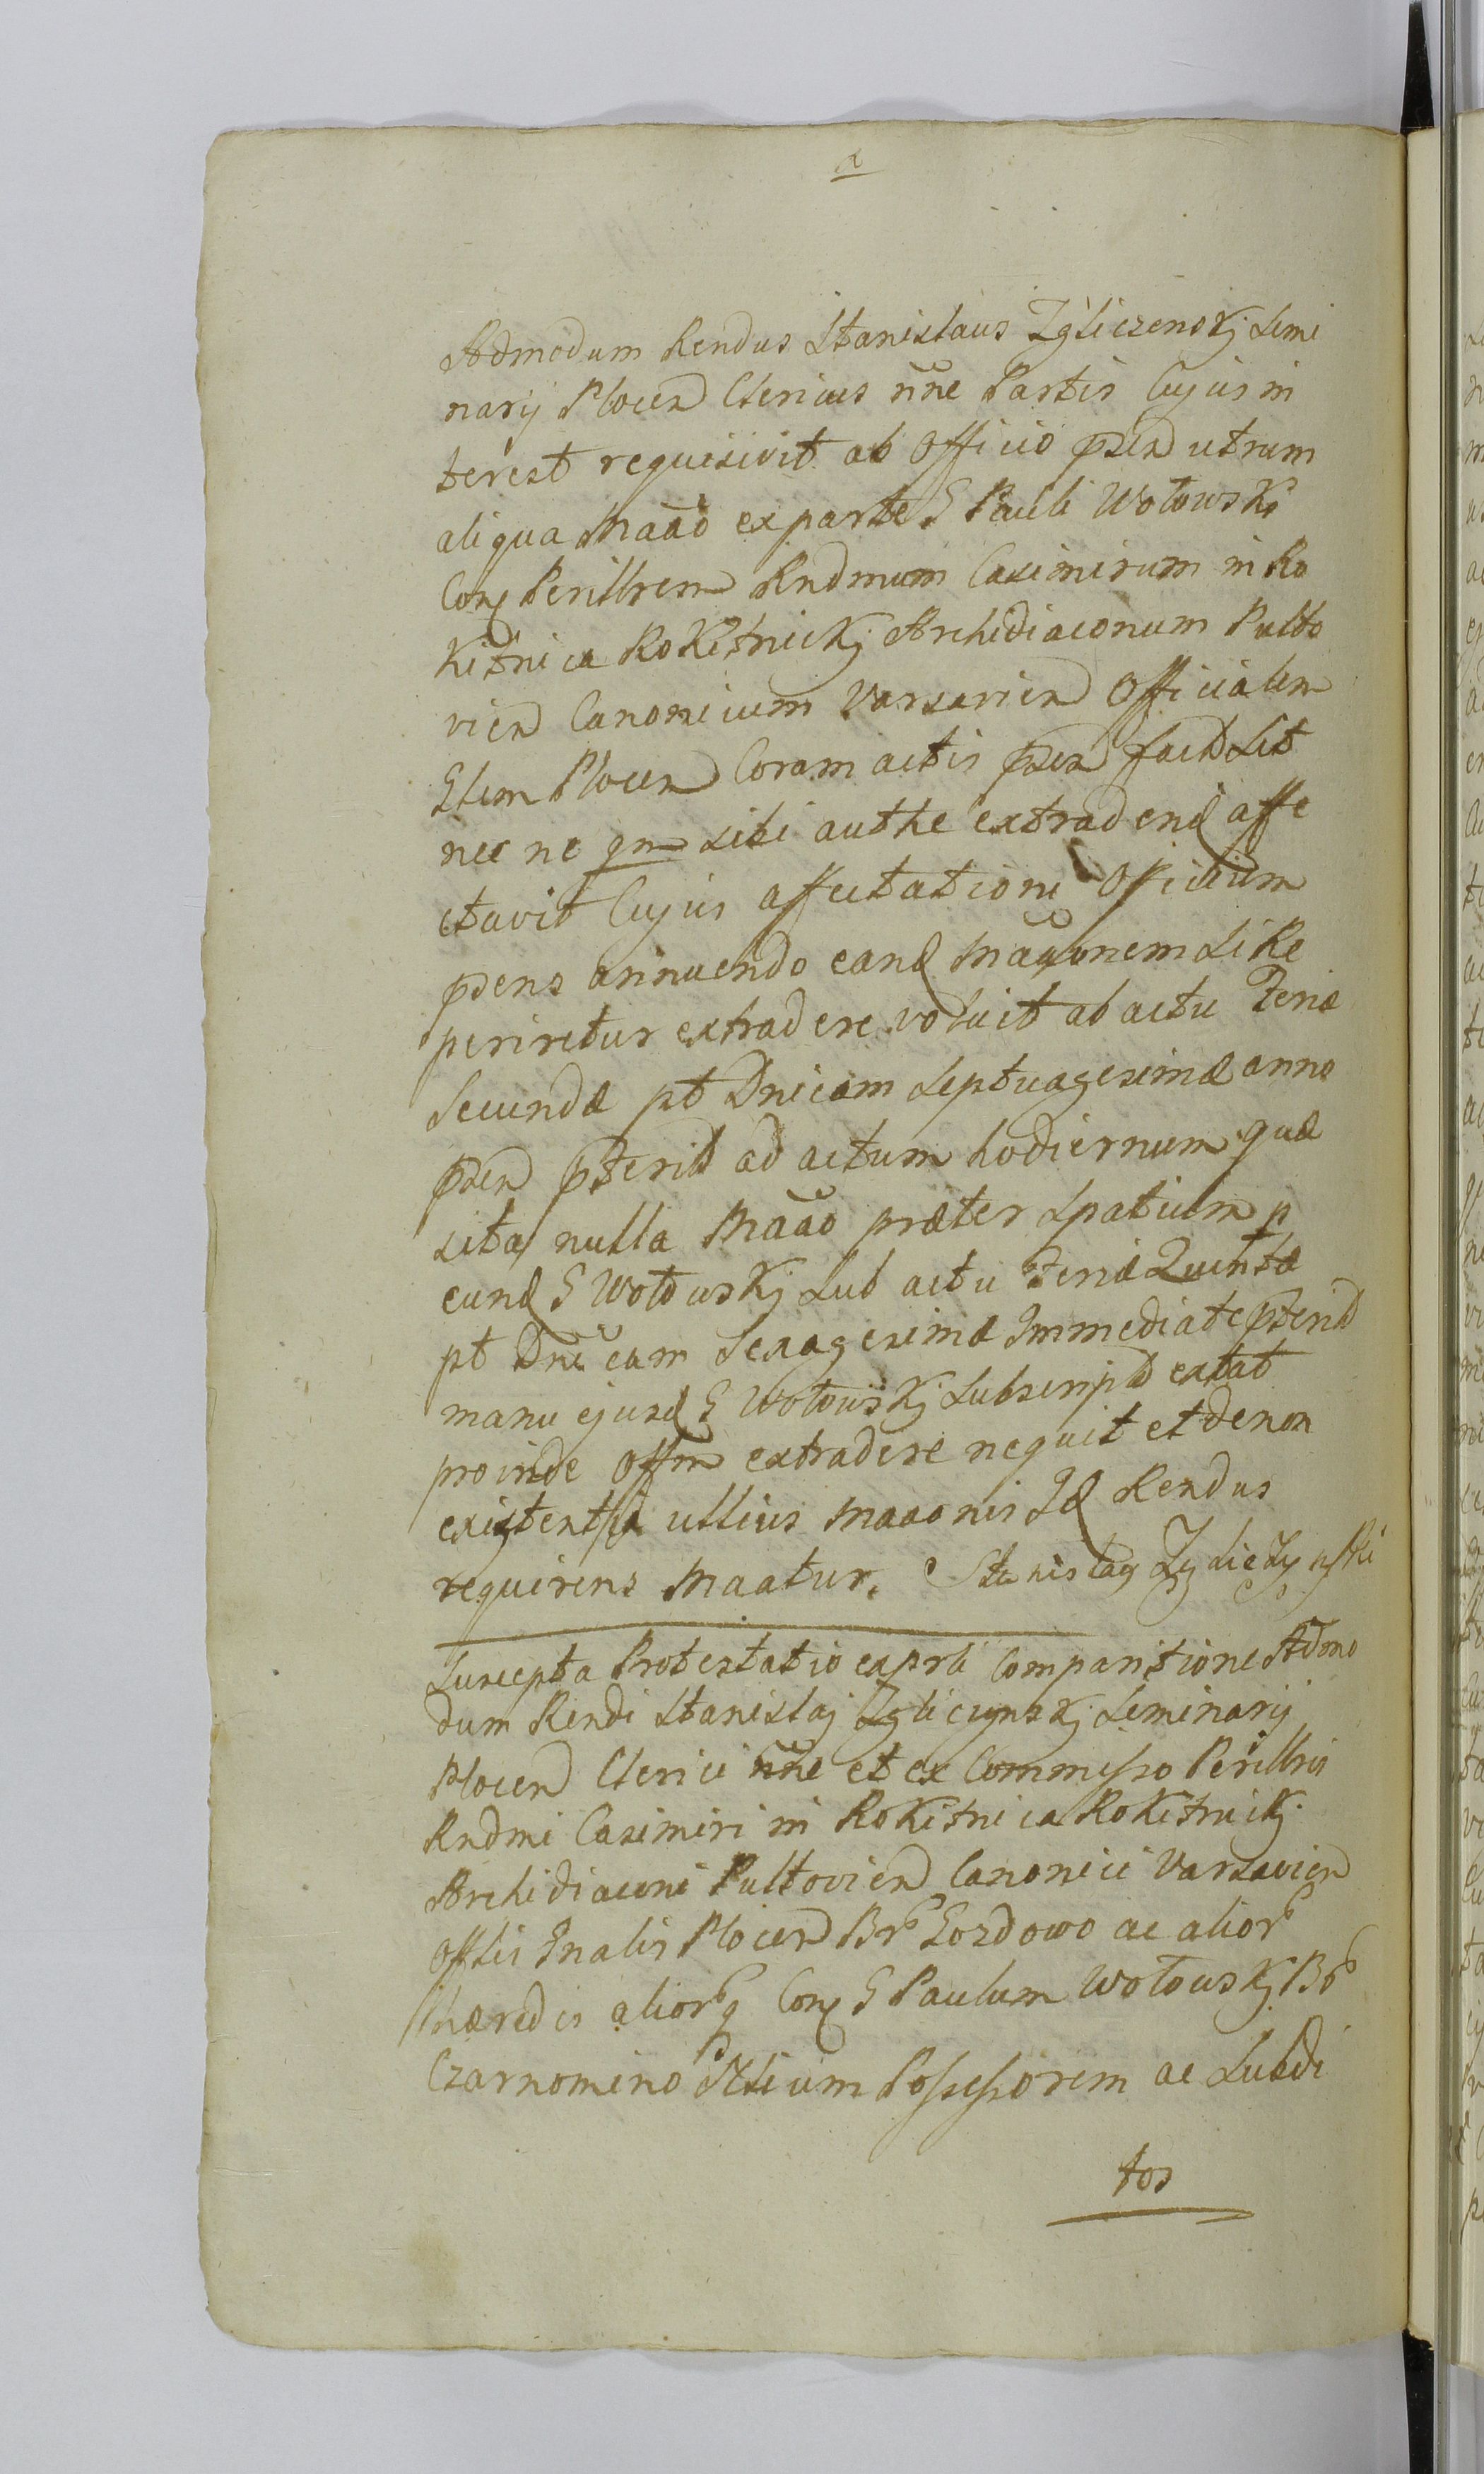 Admodum Rendus Stanislaus Zgliczenskj Semi
narij Plocen Clericus nne Partis Cujus in
terest requisivit ab Officio psen utrum
aliqua Maao ex parte G Pauli Wołowski
Con Perillrem Rndmum Casimirum in Ro
kitnica Rokitnickj Archidiaconum Pulto
vien Canonicum Varsavien Officialem
Glem Plocen Coram actis psen fact sit
nec ne qm sibi authe extradend affe
ctavit Cujus affectationi Officium
psens annuendo eand Maaonem si Re
periretur extradere voluit ab actu Feriæ
Secundæ pt Dnicam Septuagesimæ anno
psen pterit ad actum hodiernum quæ
sita nulla Maao præter spatium p
eund G Wołowskj sub actu Feriæ Quintæ
pt Dnicam Sexagesimæ Immediate pterit
manu ejusd G Wołowskj subscript extat
proinde Offm extradere nequit et de non
existentia ullius Maaonis Id Rendus
requirens Maatur. Stanisław Zgliczynski
Suscepta Protestatio ex prli Comparitione Admo
dum Rendi Stanislaj Zgliczynskj Seminarij
Plocen Clerici nne et ex Commisso Perillris
Rndmi Casimiri in Rokitnica Rokitnickj
Archidiaconi Pultovien Canonici Varsavien
Offlis Gnalis Plocen Br Gozdowo ac alior
hæredis aliorq Con G Paulum Wołowskj Br
Czarnomino Possessorem ac Subdi
tos